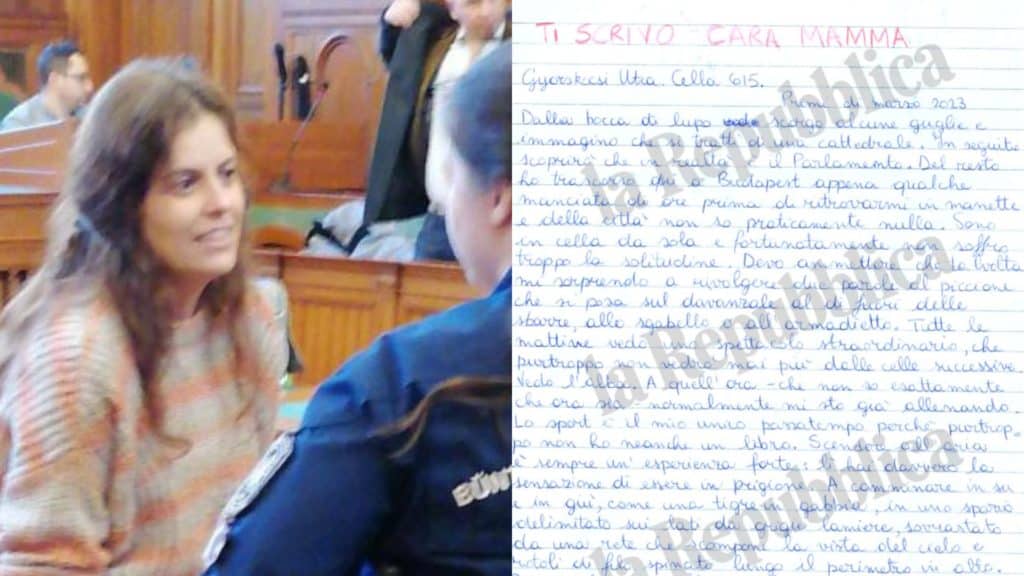 TI SCRIVO CARA MAMMA
Gyorskocsi Utca. Cella 615.
Primi di marzo 2023
Dalla bocca di lupo scorgo alcune guglie e
immagino che si tratti di una cattedrale. In seguito
scoprirò che in realtà è il Parlamento. Del resto
ho trascorso qui a Budapest appena qualche
manciata di ore prima di ritrovarmi in manette
e della città non so praticamente nulla. Sono
in cella da sola e fortunatamente non soffro
troppo la solitudine. Devo ammettere che a volte
mi sorprendo a rivolgere due parole al piccione
che si posa sul davanzale al di fuori delle
sbarre, allo sgabello o all'armadietto. Tutte le
mattine vedo uno spettacolo straordinario, che
purtroppo non vedrò mai più dalle celle successive.
Vedo l'alba. A quell'ora - che non so esattamente
che ora sia - normalmente mi sto già allenando.
Lo sport è il mio unico passatempo perché purtrop-
po non ho neanche un libro. Scendere all'aria
è sempre un'esperienza forte: lì hai davvero la
sensazione di essere in prigione. A camminare in su
e in giù, come una tigre in gabbia, in uno spazio
delimitato sui lati da grigie lamiere, sovrastato
da una rete che scompone la vista del cielo e
rotoli di filo spinato lungo il perimetro in alto.
la Repubblica
la Repubblica
la Repubblica
BÜNT